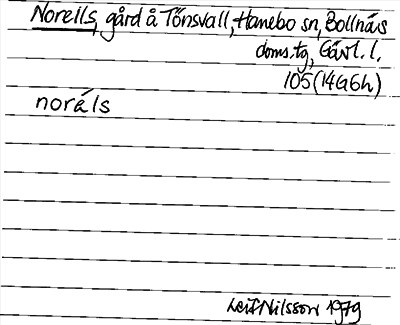 Norells, gård å Tönsvall, Hanebo sn, Bollnäs
doms.tg, Gävl.l.
105 (14G6h)
noräls
Leif Nilsson 1979